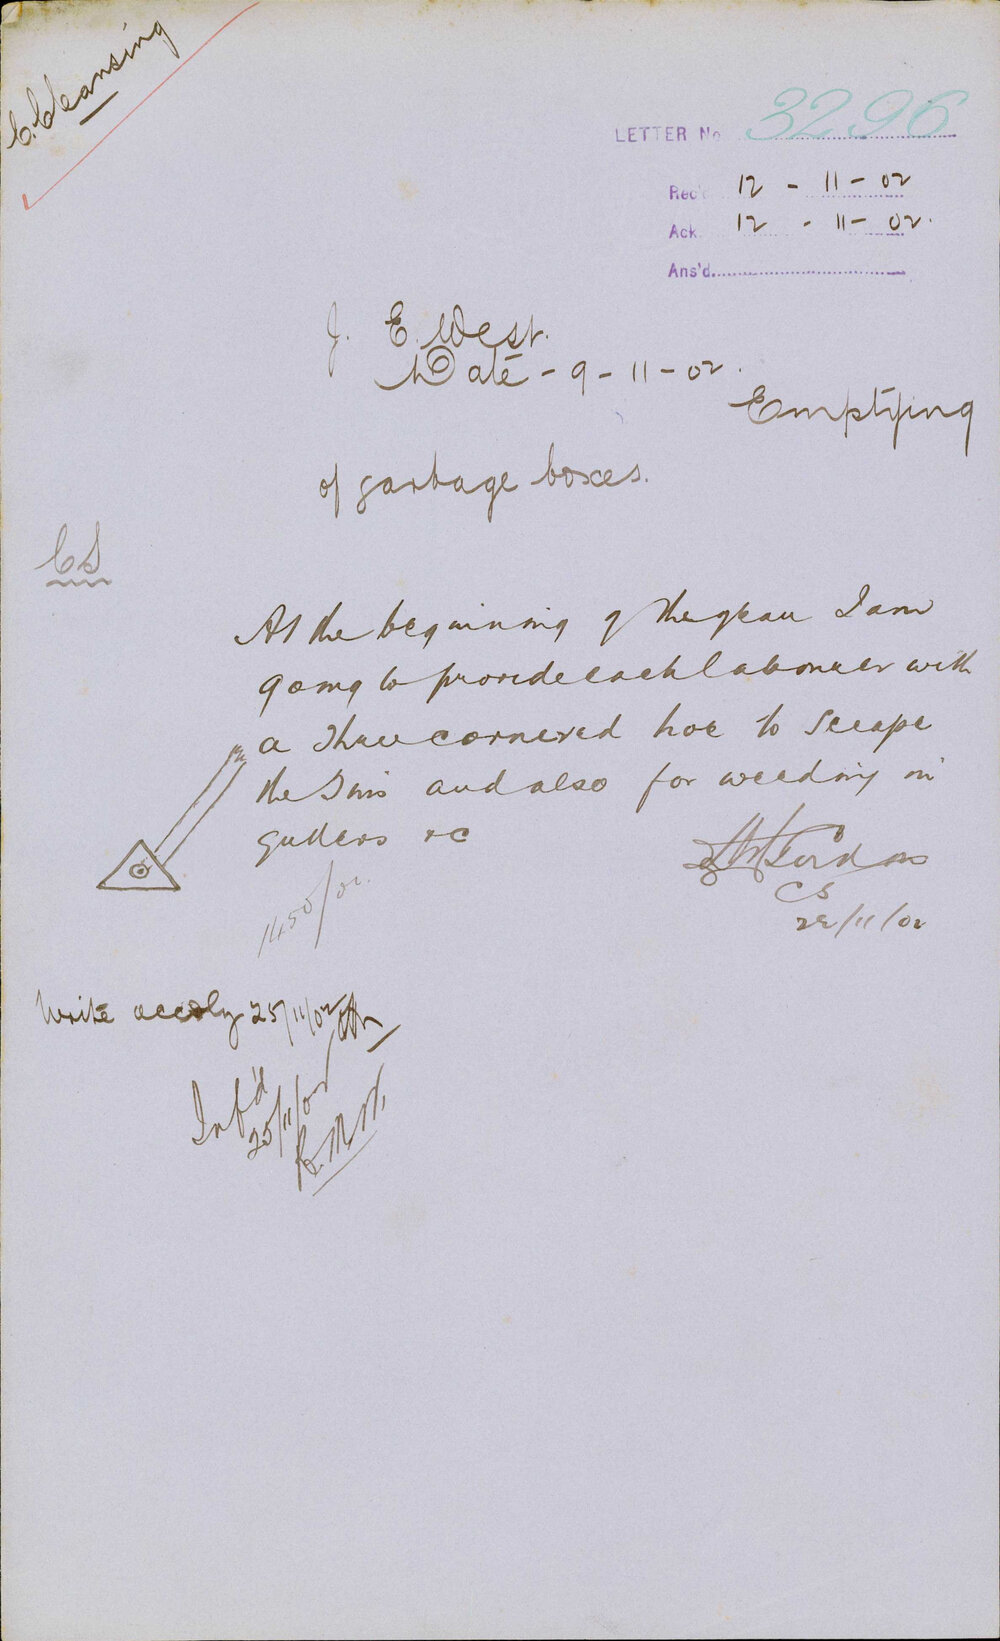 C. Cleansing
LETTER No 3296
Rec'd 12 - 11 - 02
Ack. 12 - 11 - 02.
Ans'd.
J. E. West.
Date - 9 - 11 - 02.
Emptying
of garbage boxes.
CS
At the beginning of the year I am
going to provide each labourer with
a three cornered hoe to scrape
the tins and also for weeding in
gutters &c
CS
/11/02
1450/02.
Write accdly 25/11/02
Inf'd
25/11/02